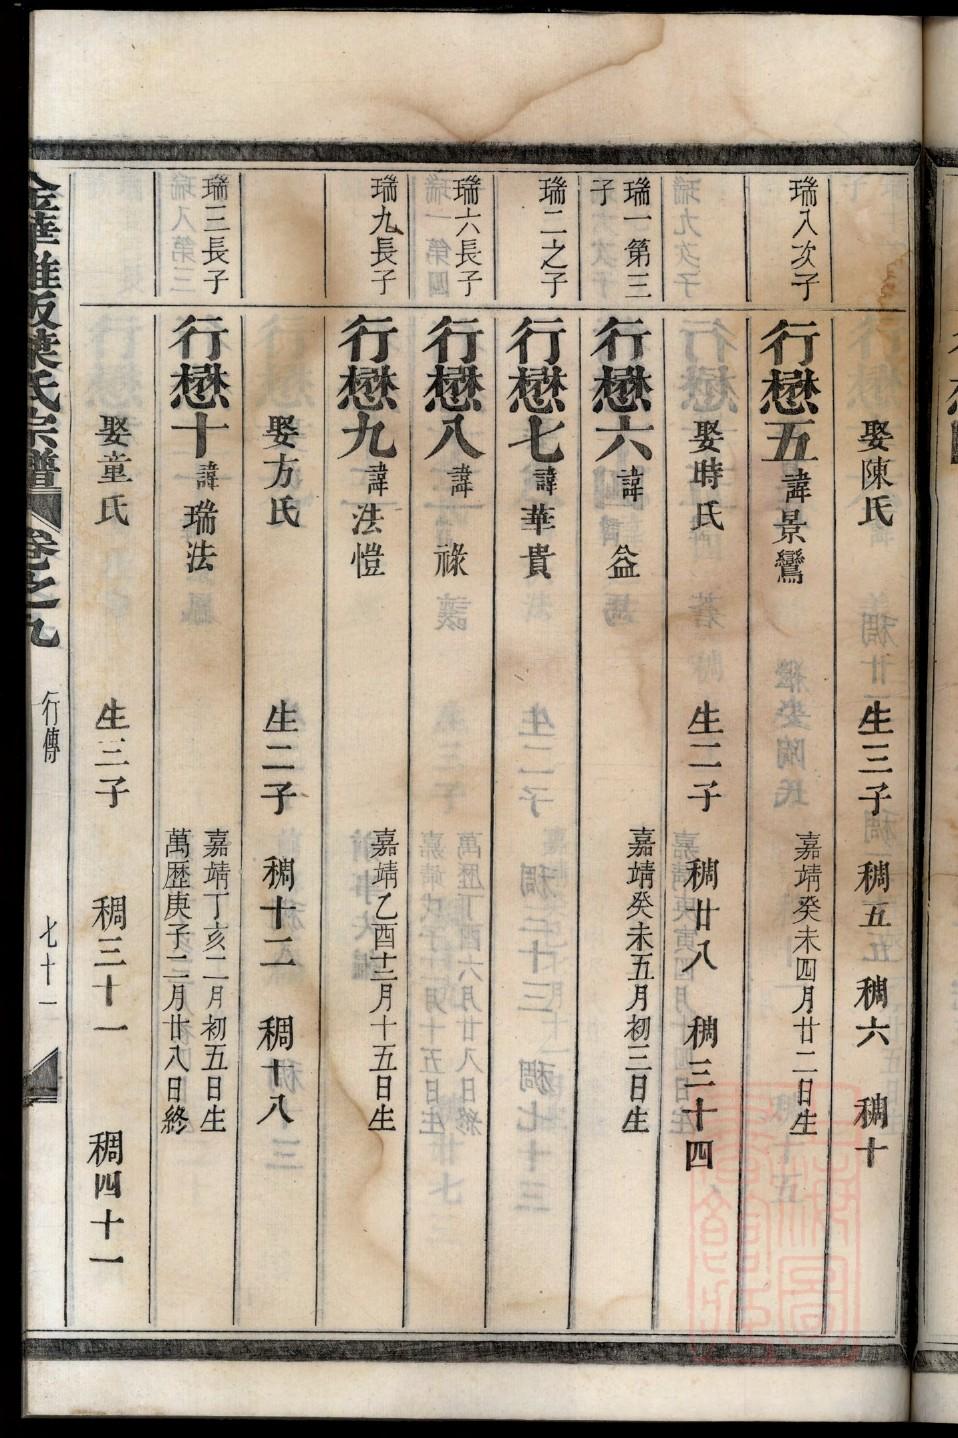 娶陳氏 生三子 稠五 稠六 稠十
瑞八次子
行懋五 諱景鸞 嘉靖癸未四月廿二日生
娶時氏 生二子 稠廿八 稠三十四
瑞一第三子
行懋六 諱益 嘉靖癸未五月初三日生
瑞二之子
行懋七 諱華貴
瑞六長子
行懋八 諱祿
瑞九長子
行懋九 諱法愷 嘉靖乙酉十二月十五日生
娶方氏 生二子 稠十二 稠十八
瑞三長子
行懋十 諱瑞法 嘉靖丁亥二月初五日生
萬歷庚子二月廿八日終
娶童氏 生三子 稠三十一 稠四十一
葉氏宗譜 卷之九 行傳 七十一